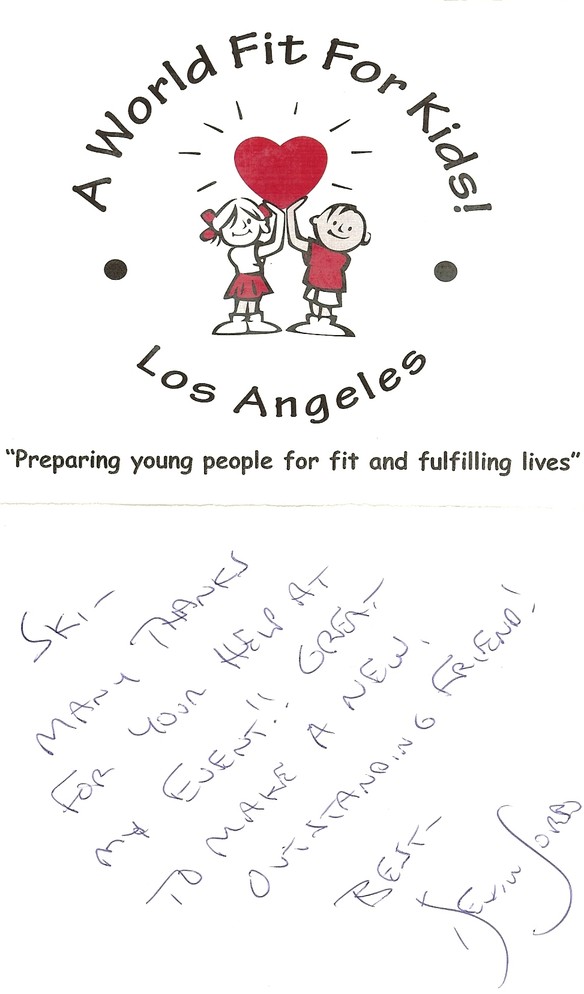 A World Fit For Kids!
Los Angeles
"Preparing young people for fit and fulfilling lives"
SKI-
MANY THANKS
FOR YOUR HELP AT
MY EVENT!! GREAT
TO MAKE A NEW,
OUTSTANDING FRIEND!
BEST-
KEVIN SORBO